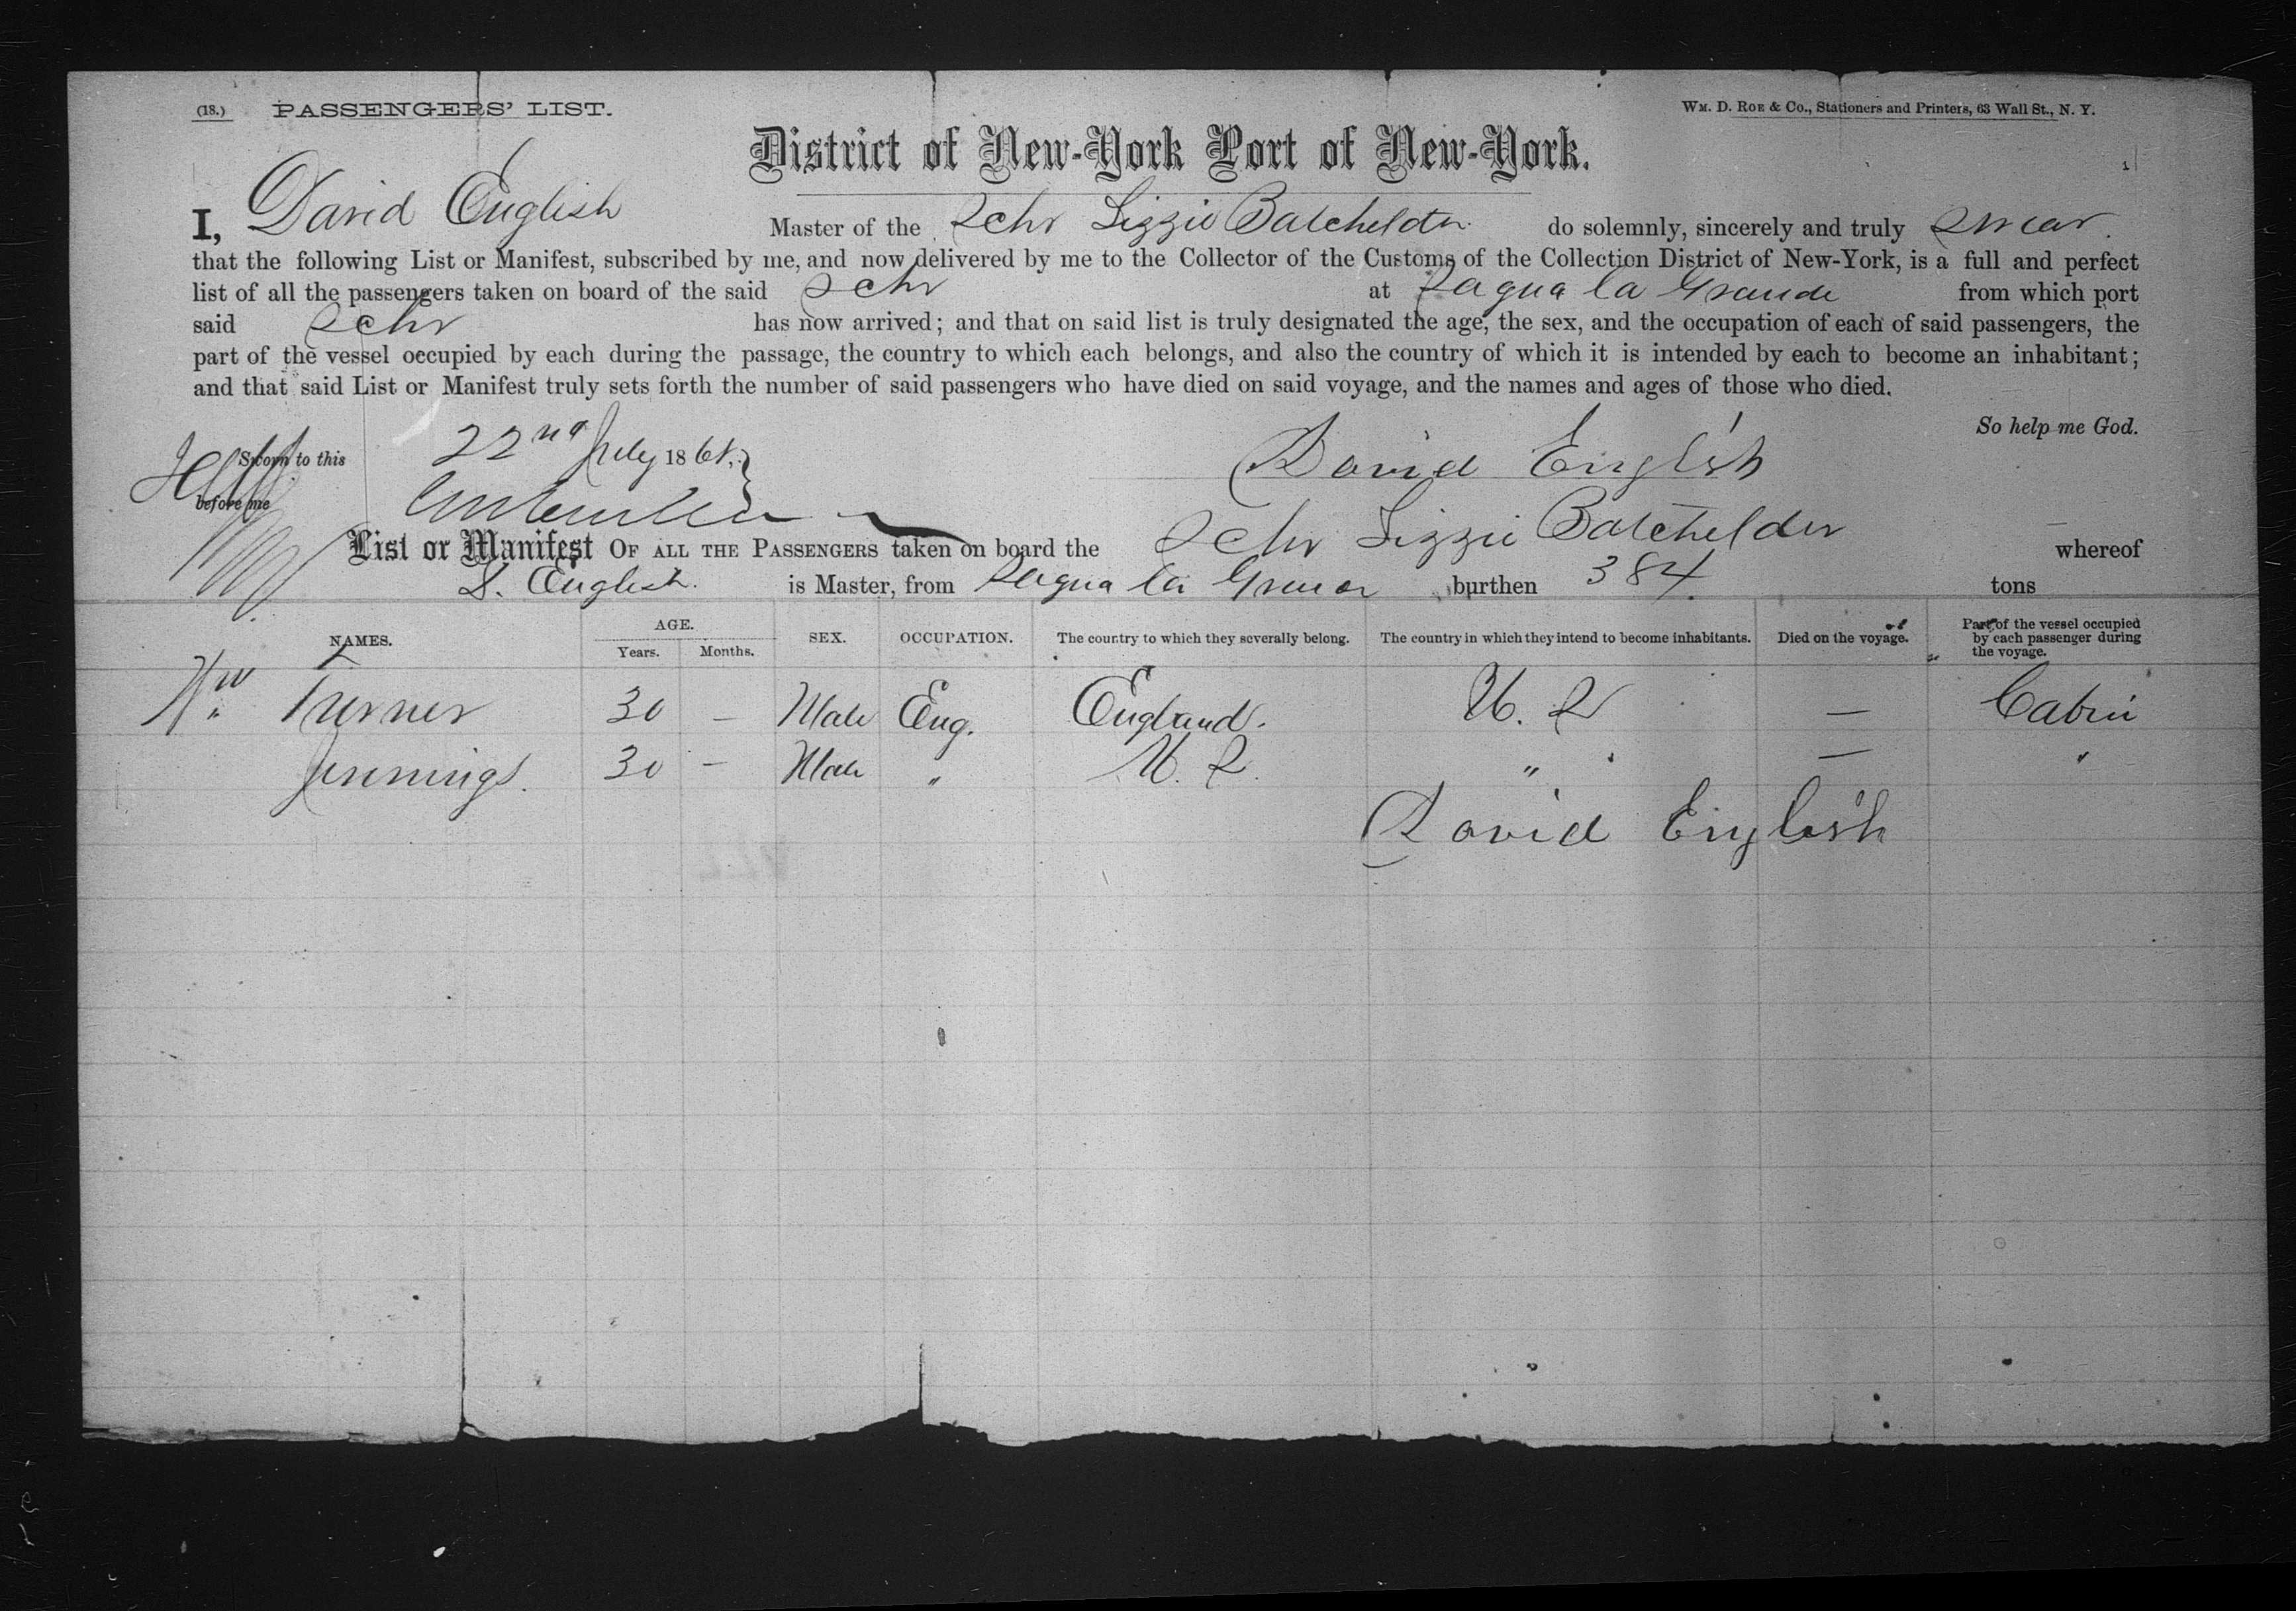 (18.) PASSENGERS' LIST. Wm. D. Roe & Co., Stationers and Printers, 63 Wall St., N. Y.
District of New-York Port of New-York.
I, David English Master of the Schr Lizzie Batchelder do solemnly, sincerely and truly swear
that the following List or Manifest, subscribed by me, and now delivered by me to the Collector of the Customs of the Collection District of New-York, is a full and perfect
list of all the passengers taken on board of the said Schr at Sagua la Grande from which port
said Schr has now arrived; and that on said list is truly designated the age, the sex, and the occupation of each of said passengers, the
part of the vessel occupied by each during the passage, the country to which each belongs, and also the country of which it is intended by each to become an inhabitant;
and that said List or Manifest truly sets forth the number of said passengers who have died on said voyage, and the names and ages of those who died.
So help me God.
Sworn to this 22nd July 186 David English
before me
List or Manifest OF ALL THE PASSENGERS taken on board the Schr Lizzie Batchelder whereof
D. English. is Master, from Sagua la Grande burthen 384 tons
NAMES. AGE. Years. Months. SEX. OCCUPATION. The country to which they severally belong. The country in which they intend to become inhabitants. Died on the voyage. Part of the vessel occupied by each passenger during the voyage.
Wm Turner 30 — Male Eng. England. U. S — Cabin
Jennings. 30 — Male " U. S. " — "
David English